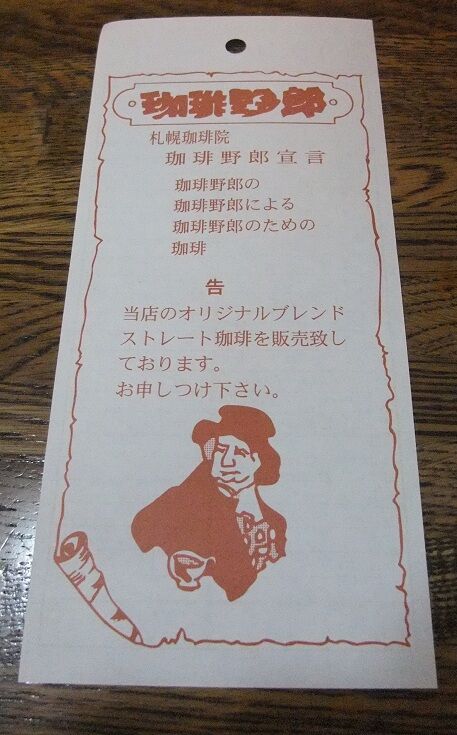 珈琲野郎
札幌珈琲院
珈琲野郎宣言
珈琲野郎の
珈琲野郎による
珈琲野郎のための
珈琲
告
当店のオリジナルブレンド
ストレート珈琲を販売致し
ております。
お申しつけ下さい。